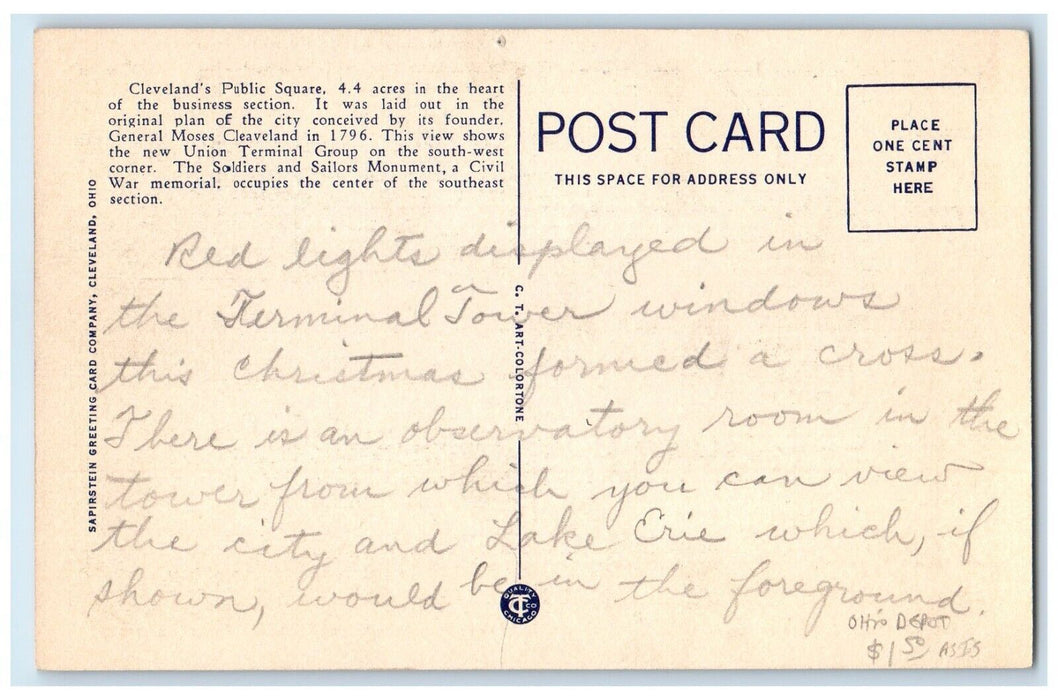 Cleveland's Public Square, 4.4 acres in the heart
of the business section. It was laid out in the
original plan of the city conceived by its founder,
General Moses Cleaveland in 1796. This view shows
the new Union Terminal Group on the south-west
corner. The Soldiers and Sailors Monument, a Civil
War memorial, occupies the center of the southeast
section.
SAPIRSTEIN GREETING CARD COMPANY, CLEVELAND, OHIO
POST CARD
THIS SPACE FOR ADDRESS ONLY
PLACE
ONE CENT
STAMP
HERE
C. T. ART-COLORTONE
Red lights displayed in
the Terminal Tower windows
this Christmas formed a cross.
There is an observatory room in the
tower from which you can view
the city and Lake Erie which, if
shown, would be in the foreground.
QUALITY
CT CO
CHICAGO
Ohio DEPOT
$1.50 AS IS